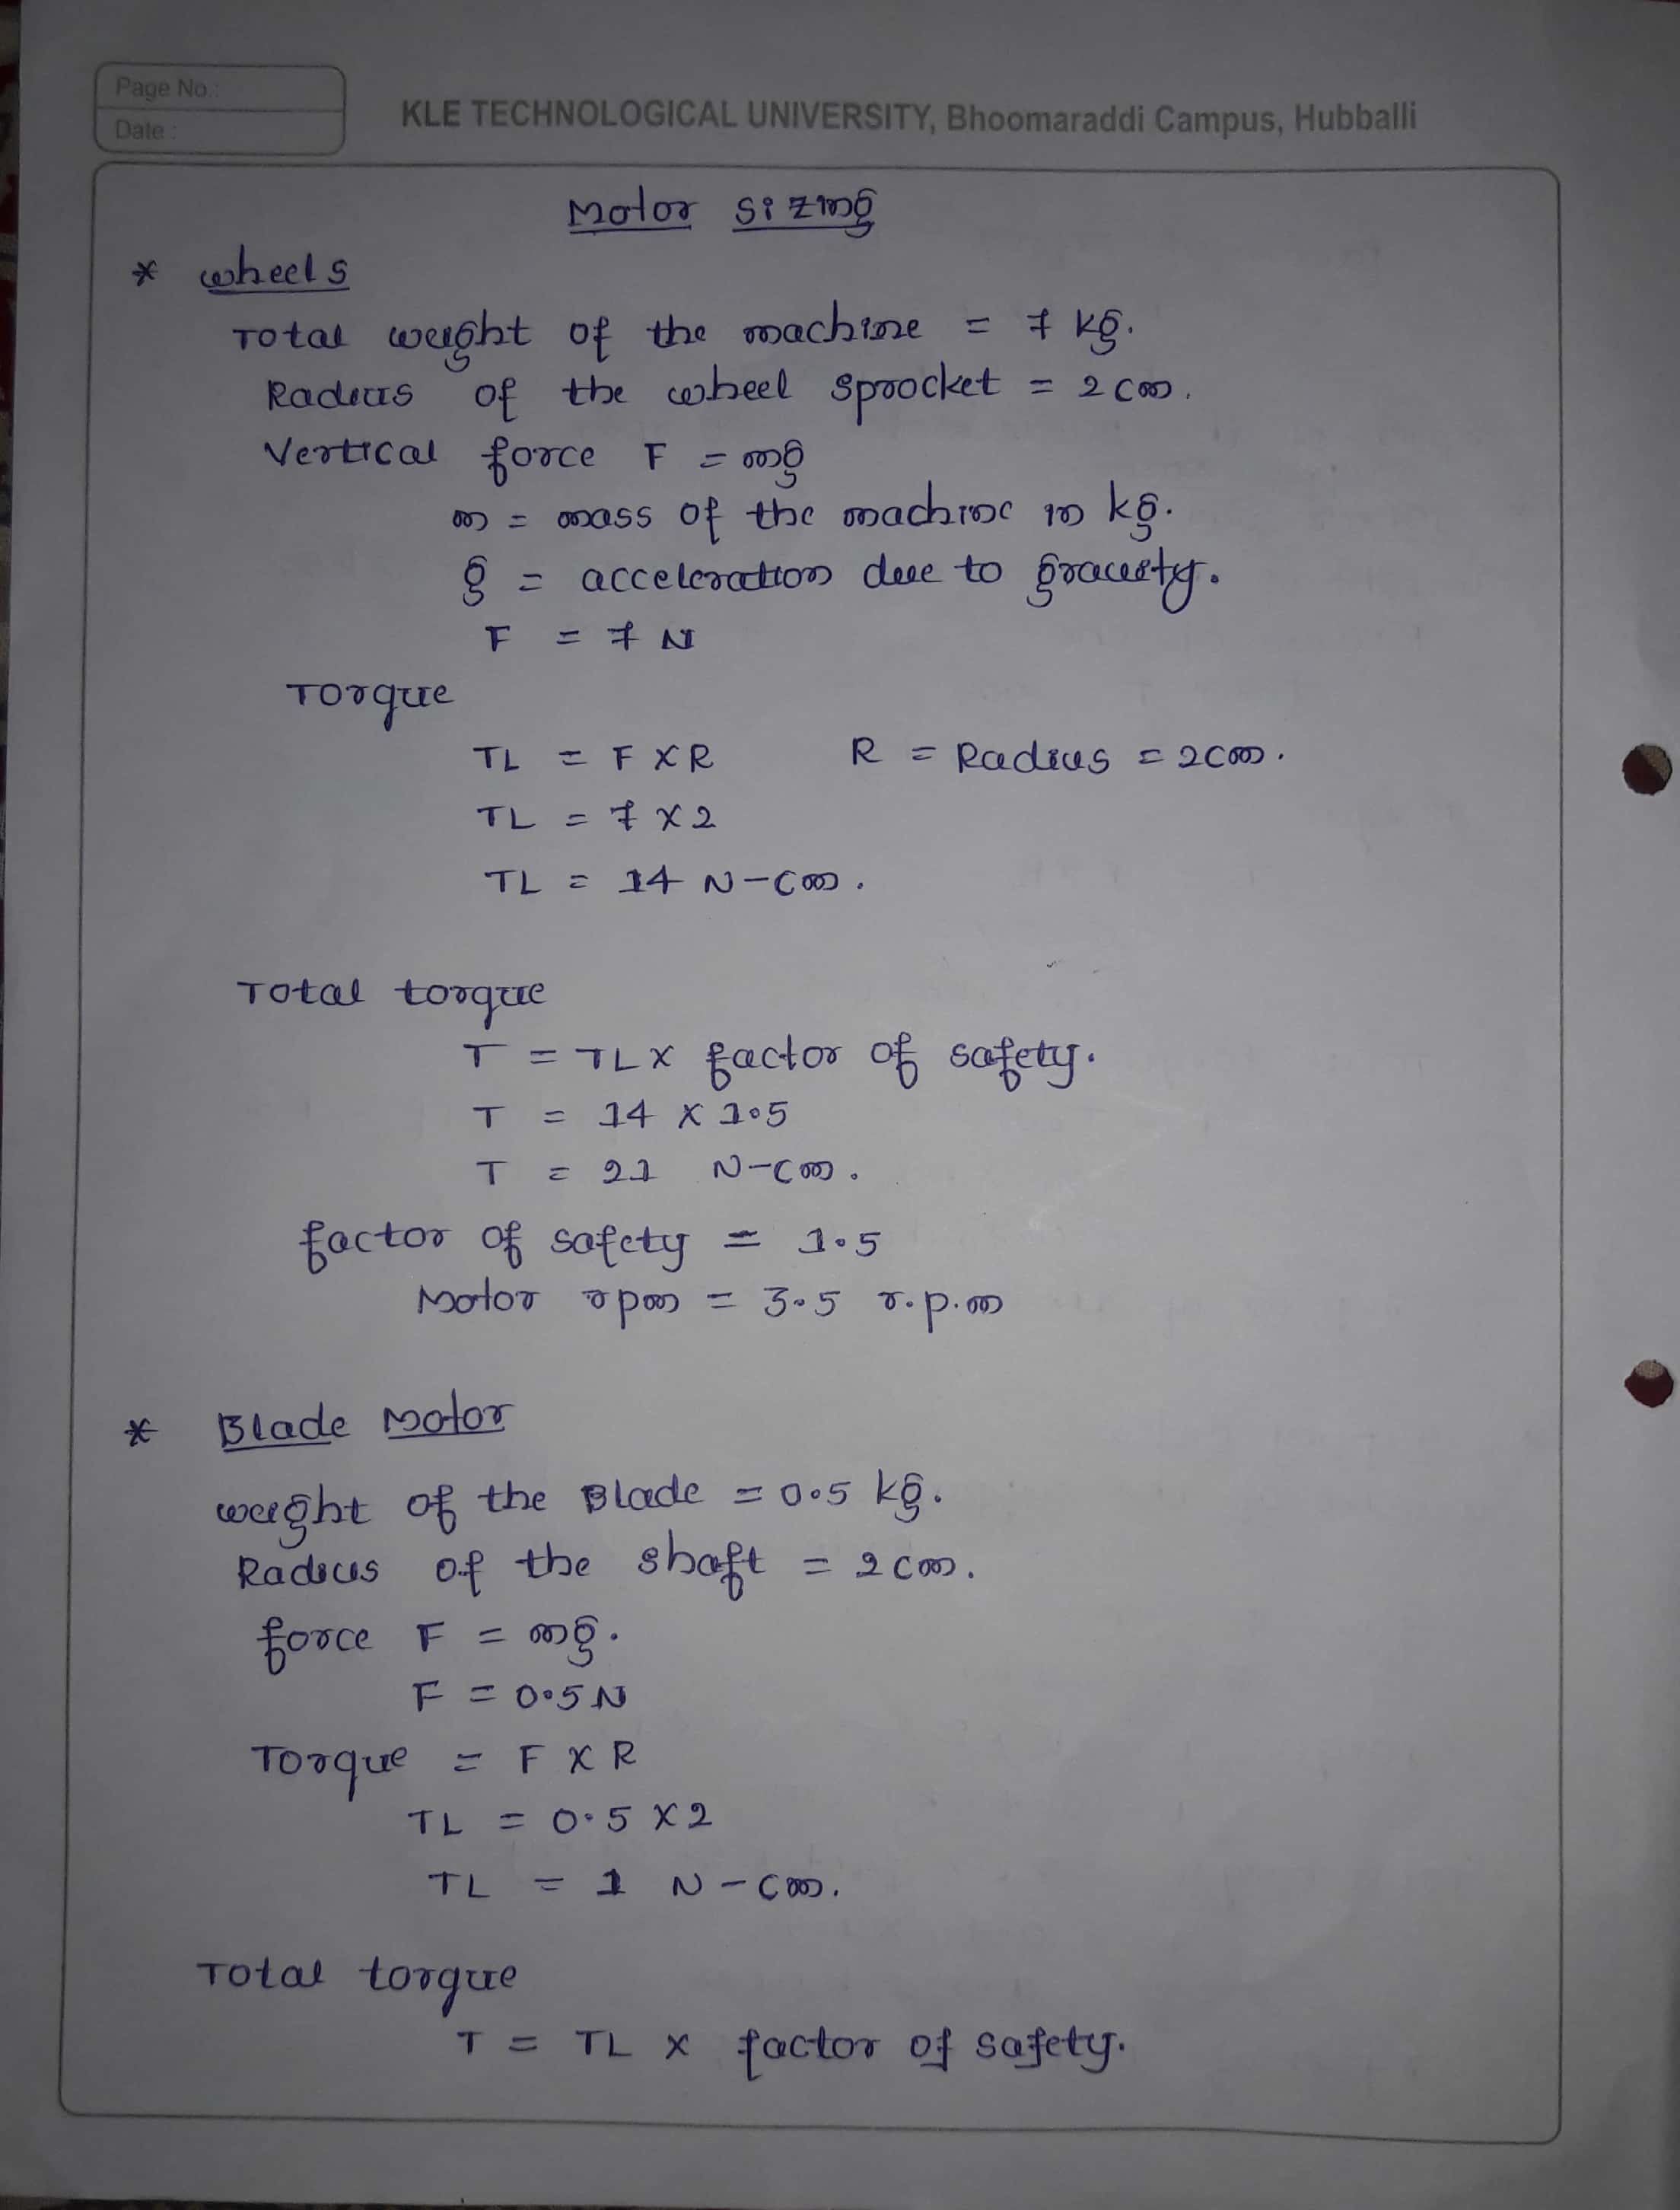 Page No.:
Date :
KLE TECHNOLOGICAL UNIVERSITY, Bhoomaraddi Campus, Hubballi
Motor sizing
* wheels
Total weight of the machine = 7 kg.
Radius of the wheel sprocket = 2 cm.
Vertical force F = mg
m = mass of the machine in kg.
g = acceleration due to gravity.
F = 7 N
Torque
TL = F X R R = Radius = 2cm.
TL = 7 X 2
TL = 14 N-cm.
Total torque
T = TL X factor of safety.
T = 14 X 1.5
T = 21 N-cm.
factor of safety = 1.5
Motor rpm = 3.5 r.p.m
* Blade Motor
weight of the Blade = 0.5 kg.
Radius of the shaft = 2 cm.
force F = mg.
F = 0.5 N
Torque = F X R
TL = 0.5 X 2
TL = 1 N-cm.
Total torque
T = TL X factor of safety.